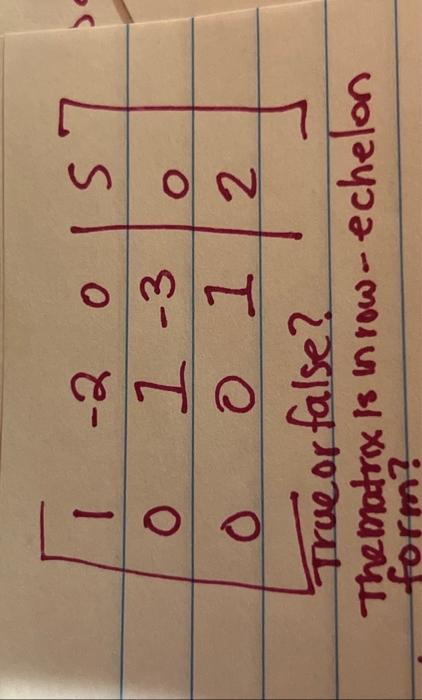 1 -2 0 | 5
0 1 -3 | 0
0 0 1 | 2
True or false?
The matrix is in row-echelon
form?